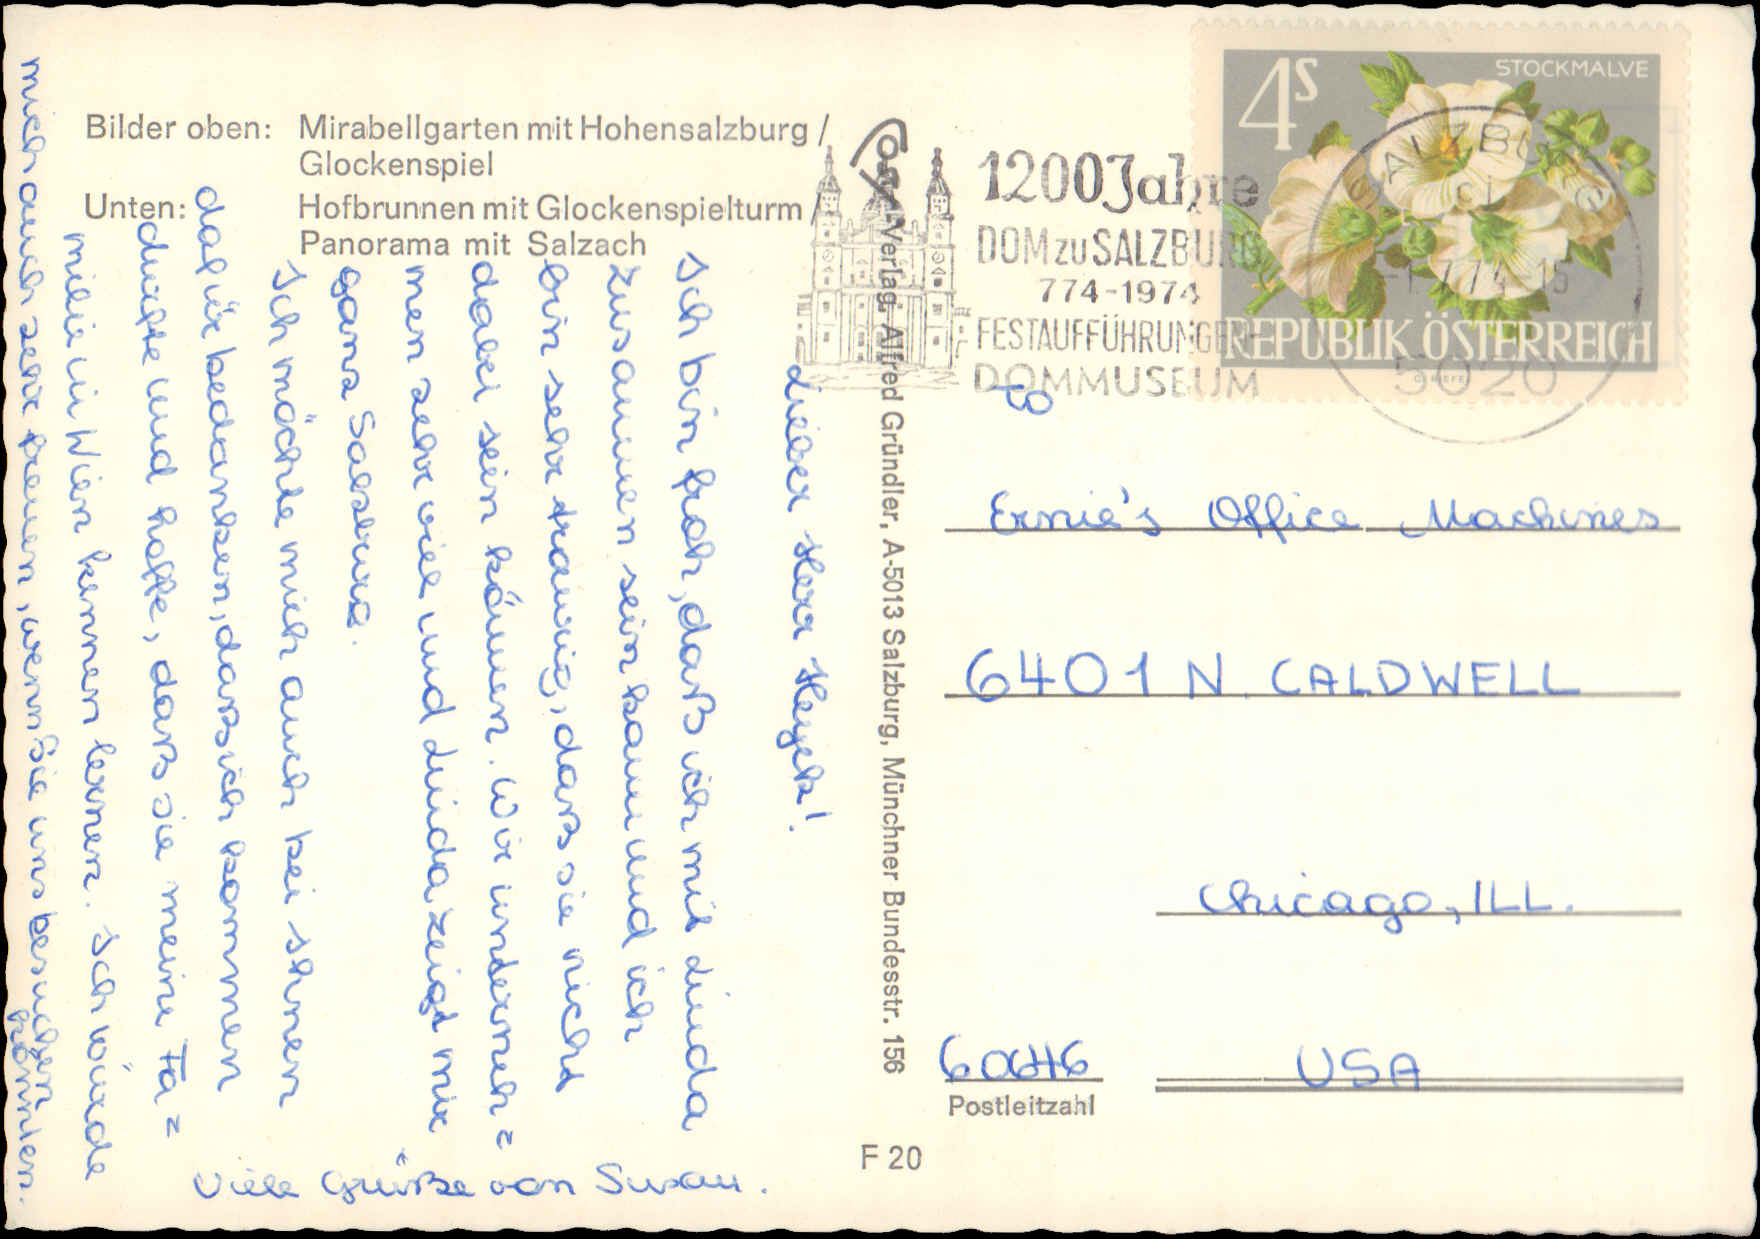 Bilder oben: Mirabellgarten mit Hohensalzburg /
Glockenspiel
Unten: Hofbrunnen mit Glockenspielturm /
Panorama mit Salzach
Lieber Herr
Ich bin froh, daß ich mit Linda
zusammen sein kann und ich
bin sehr traurig, daß sie nicht
dabei sein können. Wir unterneh=
men sehr viel und Linda zeigt mir
ganz Salzburg.
Ich möchte mich auch bei Ihnen
dafür bedanken, daß ich kommen
durfte und hoffe, daß sie meine Fa=
milie in Wien kennen lernen. Ich würde
mich auch sehr freuen, wenn Sie uns besuchen
könnten.
Viele Grüße von Susan.
Verlag: Alfred Gründler, A-5013 Salzburg, Münchner Bundesstr. 156
F 20
1200 Jahre
DOM zu SALZBURG
774-1974
FESTAUFFÜHRUNGEN
DOMMUSEUM
SALZBURG
-1.7.74-15
5020
4S
STOCKMALVE
REPUBLIK ÖSTERREICH
TO
Ernie's Office Machines
6401 N. CALDWELL
Chicago, ILL.
60646 USA
Postleitzahl